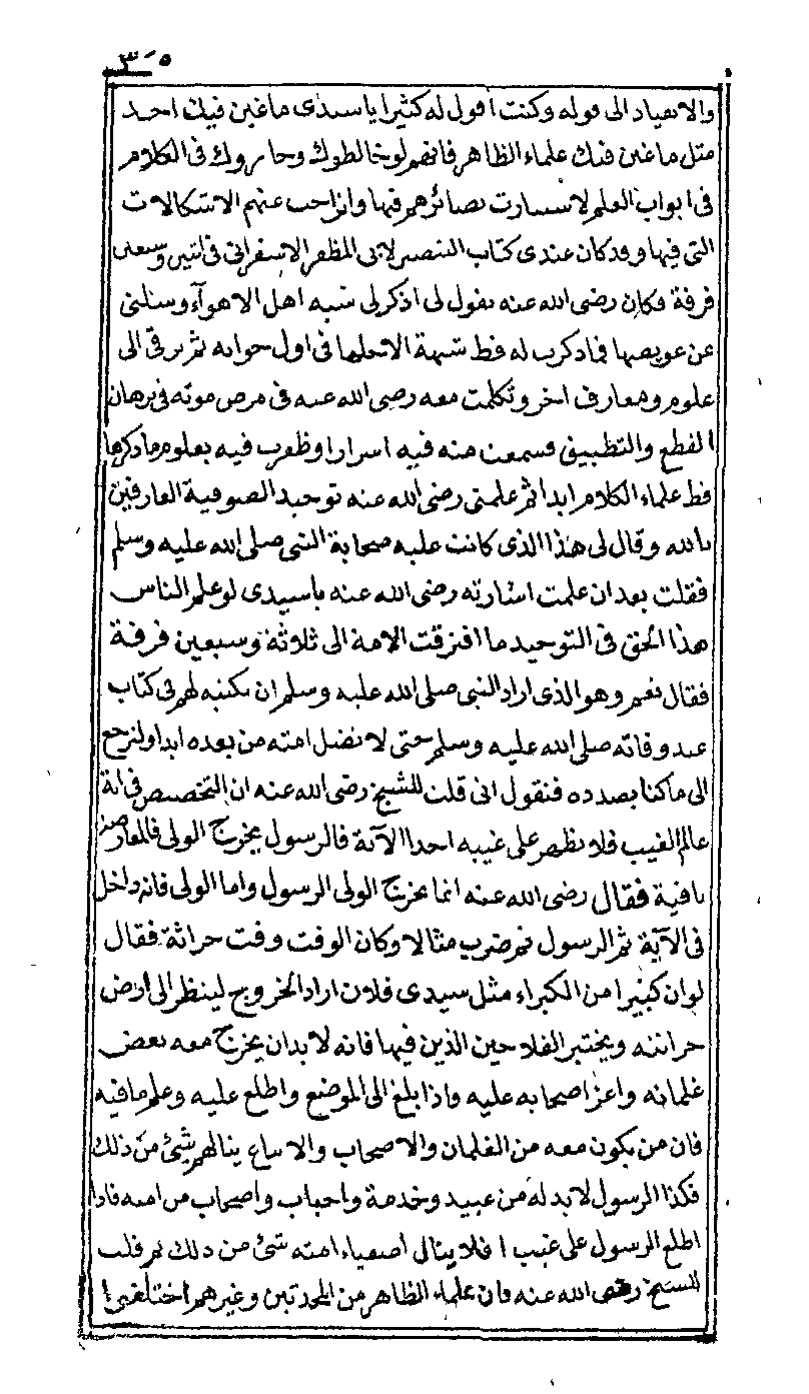 ٣٠٥
والانقياد الى قوله وكنت اقول له كثيرا يا سيدى ما غبن فيك احد
مثل ما غبن فيك علماء الظاهر فانهم لو خالطوك وحاوروك فى الكلام
فى ابواب العلم لاستنارت بصائرهم فيها وانزاحت عنهم الاشكالات
التى فيها وقد كان عندى كتاب التبصير لابى المظفر الاسفراينى فى اثنين وسبعين
فرقة فكان رضى الله عنه يقول لى اذكر لى شبه اهل الاهوآء وسلنى
عن عويصها فما ذكرت له قط شبهة الا حلها فى اول جوابه ثم يرقى الى
علوم ومعارف اخر وتكلمت معه رضى الله عنه فى مرض موته فى برهان
القطع والتطبيق فسمعت منه فيه اسرارا وظفرت فيه بعلوم ما ذكرها
قط علماء الكلام ابدا ثم علمنى رضى الله عنه توحيد الصوفية العارفين
بالله وقال لى هذا الذى كانت عليه صحابة النبى صلى الله عليه وسلم
فقلت بعد ان علمت اشارته رضى الله عنه ياسيدى لو علم الناس
هذا الحق فى التوحيد ما افترقت الامة الى ثلاثة وسبعين فرقة
فقال نعم وهو الذى اراد النبى صلى الله عليه وسلم ان يكتبه لهم فى كتاب
عند وفاته صلى الله عليه وسلم حتى لا تضل امته من بعده ابدا ولنرجع
الى ما كنا بصدده فنقول انى قلت للشيخ رضى الله عنه ان التخصيص فى اية
عالم الغيب فلا يظهر على غيبه احدا الآية فالرسول يخرج الولى فالمعارضة
باقية فقال رضى الله عنه انما يخرج الولى الرسول واما الولى فانه داخل
فى الآية ثم الرسول ثم ضرب مثالا وكان الوقت وقت حراثة فقال
لو ان كبيرا من الكبراء مثل سيدى فلان اراد الخروج لينظر الى ارض
حراثته ويختبر الفلاحين الذين فيها فانه لا بد ان يخرج معه بعض
غلمانه واعز اصحابه عليه فاذا بلغ الى الموضع واطلع عليه وعلم ما فيه
فان من يكون معه من الغلمان والاصحاب والاتباع ينالهم شئ من ذلك
فكذا الرسول لا بد له من عبيد وخدمة واحباب واصحاب من امته فاذا
اطلع الرسول على غيب افلا ينال اصفياء امته شئ من ذلك ثم قلت
للشيخ رضى الله عنه فان علماء الظاهر من المحدثين وغيرهم اختلفوا